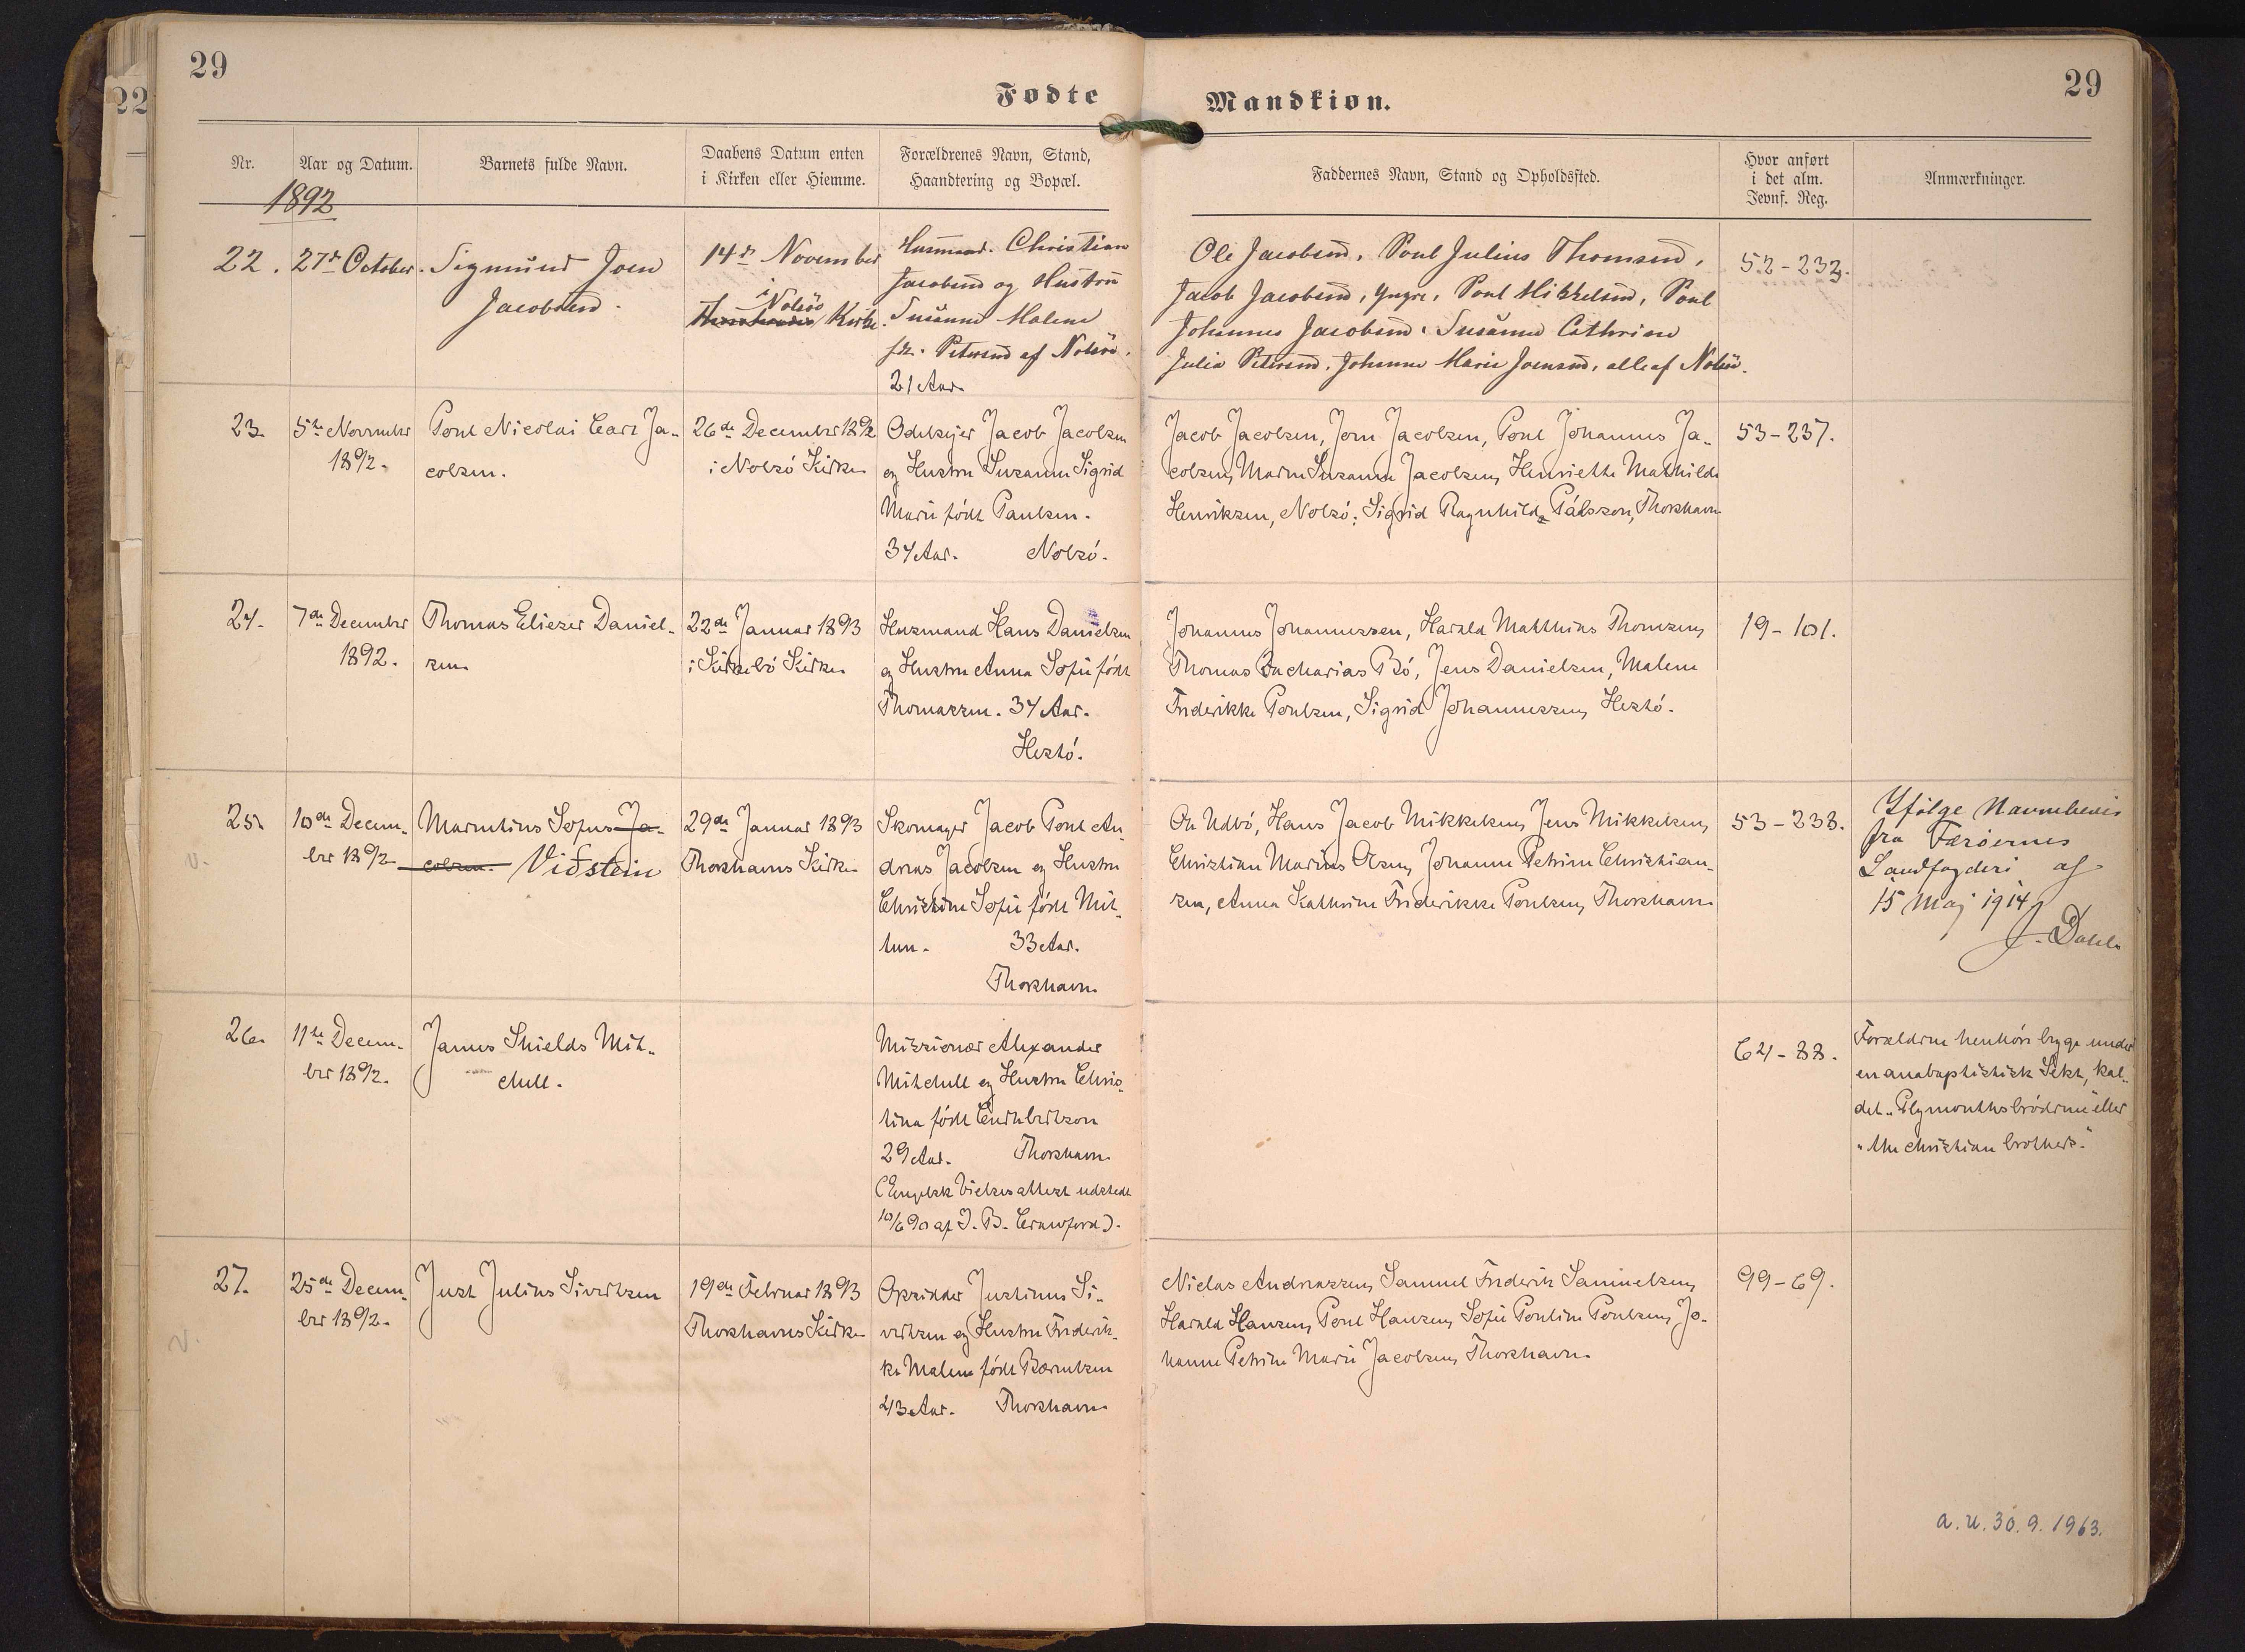 29
22
29
Fødte
Mandkiøn.
Nr.
Aar og Datum.
Barnets fulde Navn.
Daabens Datum enten
i Kirken eller Hiemme.
Forældrenes Navn, Stand,
Haandtering og Bopæl.
Faddernes Navn, Stand og Opholdssted.
Hvor anført
i det alm.
Jevnf. Reg.
Anmærkninger.
1892
22.
27d October.
Sigmund Joen
Jacobsen.
14d November
i Nolsö
Kirke.
Husmand. Christian
Jacobsen og Hustru
Susanne Malene
fd. Petersen af Nolsö.
21 Aar
Ole Jacobsen, Poul Julius Thomsen,
Jacob Jacobsen, yngre, Poul Mikkelsen, Poul
Johannes Jacobsen, Susanne Cathrine
Julia Petersen, Johanne Marie Joensen, alle af Nolsö.
52-232.
23.
5te November
1892.
Poul Nicolai Carl Ja-
cobsen.
26de December 1892
i Nolsó Kirke
Odelsejer Jacob Jacobsen
og Hustru Susanne Sigrid
Marie födt Paulsen.
34 Aar. Nolsó.
Jacob Jacobsen, Joen Jacobsen, Poul Johannes Ja-
cobsen, Maren Susanne Jacobsen, Henriette Mathilde
Henriksen, Nolsó; Sigrid Ragnhild Pálsson, Thorshavn
53-237.
24.
7de December
1892.
Thomas Eliezer Daniel-
sen
22de Januar 1893
i Kirkebó Kirke
Husmand Hans Danielsen
og Hustru Anna Sofie födt
Thomassen. 34 Aar.
Hestó.
Johannes Johannessen, Harald Matthias Thomsen,
Thomas Zacharias Bó, Jens Danielsen, Malene
Frederikke Poulsen, Sigrid Johannessen, Hestó.
19-101.
25.
v.
10de Decem-
ber 1892
Marentius Sofus Ja-
cobsen. Viðstein
29de Januar 1893
Thorshavns Kirke
Skomager Jacob Poul An-
dreas Jacobsen og Hustru
Christine Sofie födt Mor-
tensen. 33 Aar.
Thorshavn
Hans Jacob Mikkelsen, Jens Mikkelsen,
Christian Marius Olsen, Johanne Petrine Christian-
sen, Anna Kathrine Frederikke Poulsen, Thorshavn
53-238.
Ifølge Navnebevis
fra Færøernes
Landfogderi af
15 Maj 1914
J. Dahl
26.
11te Decem-
ber 1892.
James Shields Mit-
chell.
Missionær Alexander
Mitchell og Hustru Chris-
tina födt Cuthbertson
29 Aar. Thorshavn
(Engelsk Vielsesattest udstedt
10/6 90 af J. B. Crawford).
64-88.
Forældrene henhóre begge under
en anabaptistisk Sekt, kal-
det "Plymouthsbródrene" eller
"the christian brothers."
27.
v.
25de Decem-
ber 1892.
Just Julius Sivertsen
19de Februar 1893
Thorshavns Kirke
Opsidder Justinus Si-
vertsen og Hustru Frederik-
ke Malene födt Bærentsen
43 Aar. Thorshavn
Niclas Andreassen, Samuel Frederik Samuelsen,
Harald Hansen, Poul Hansen, Sofie Pouline Poulsen, Jo-
hanne Petrine Marie Jacobsen, Thorshavn.
99-69.
a. u. 30.9.1963.